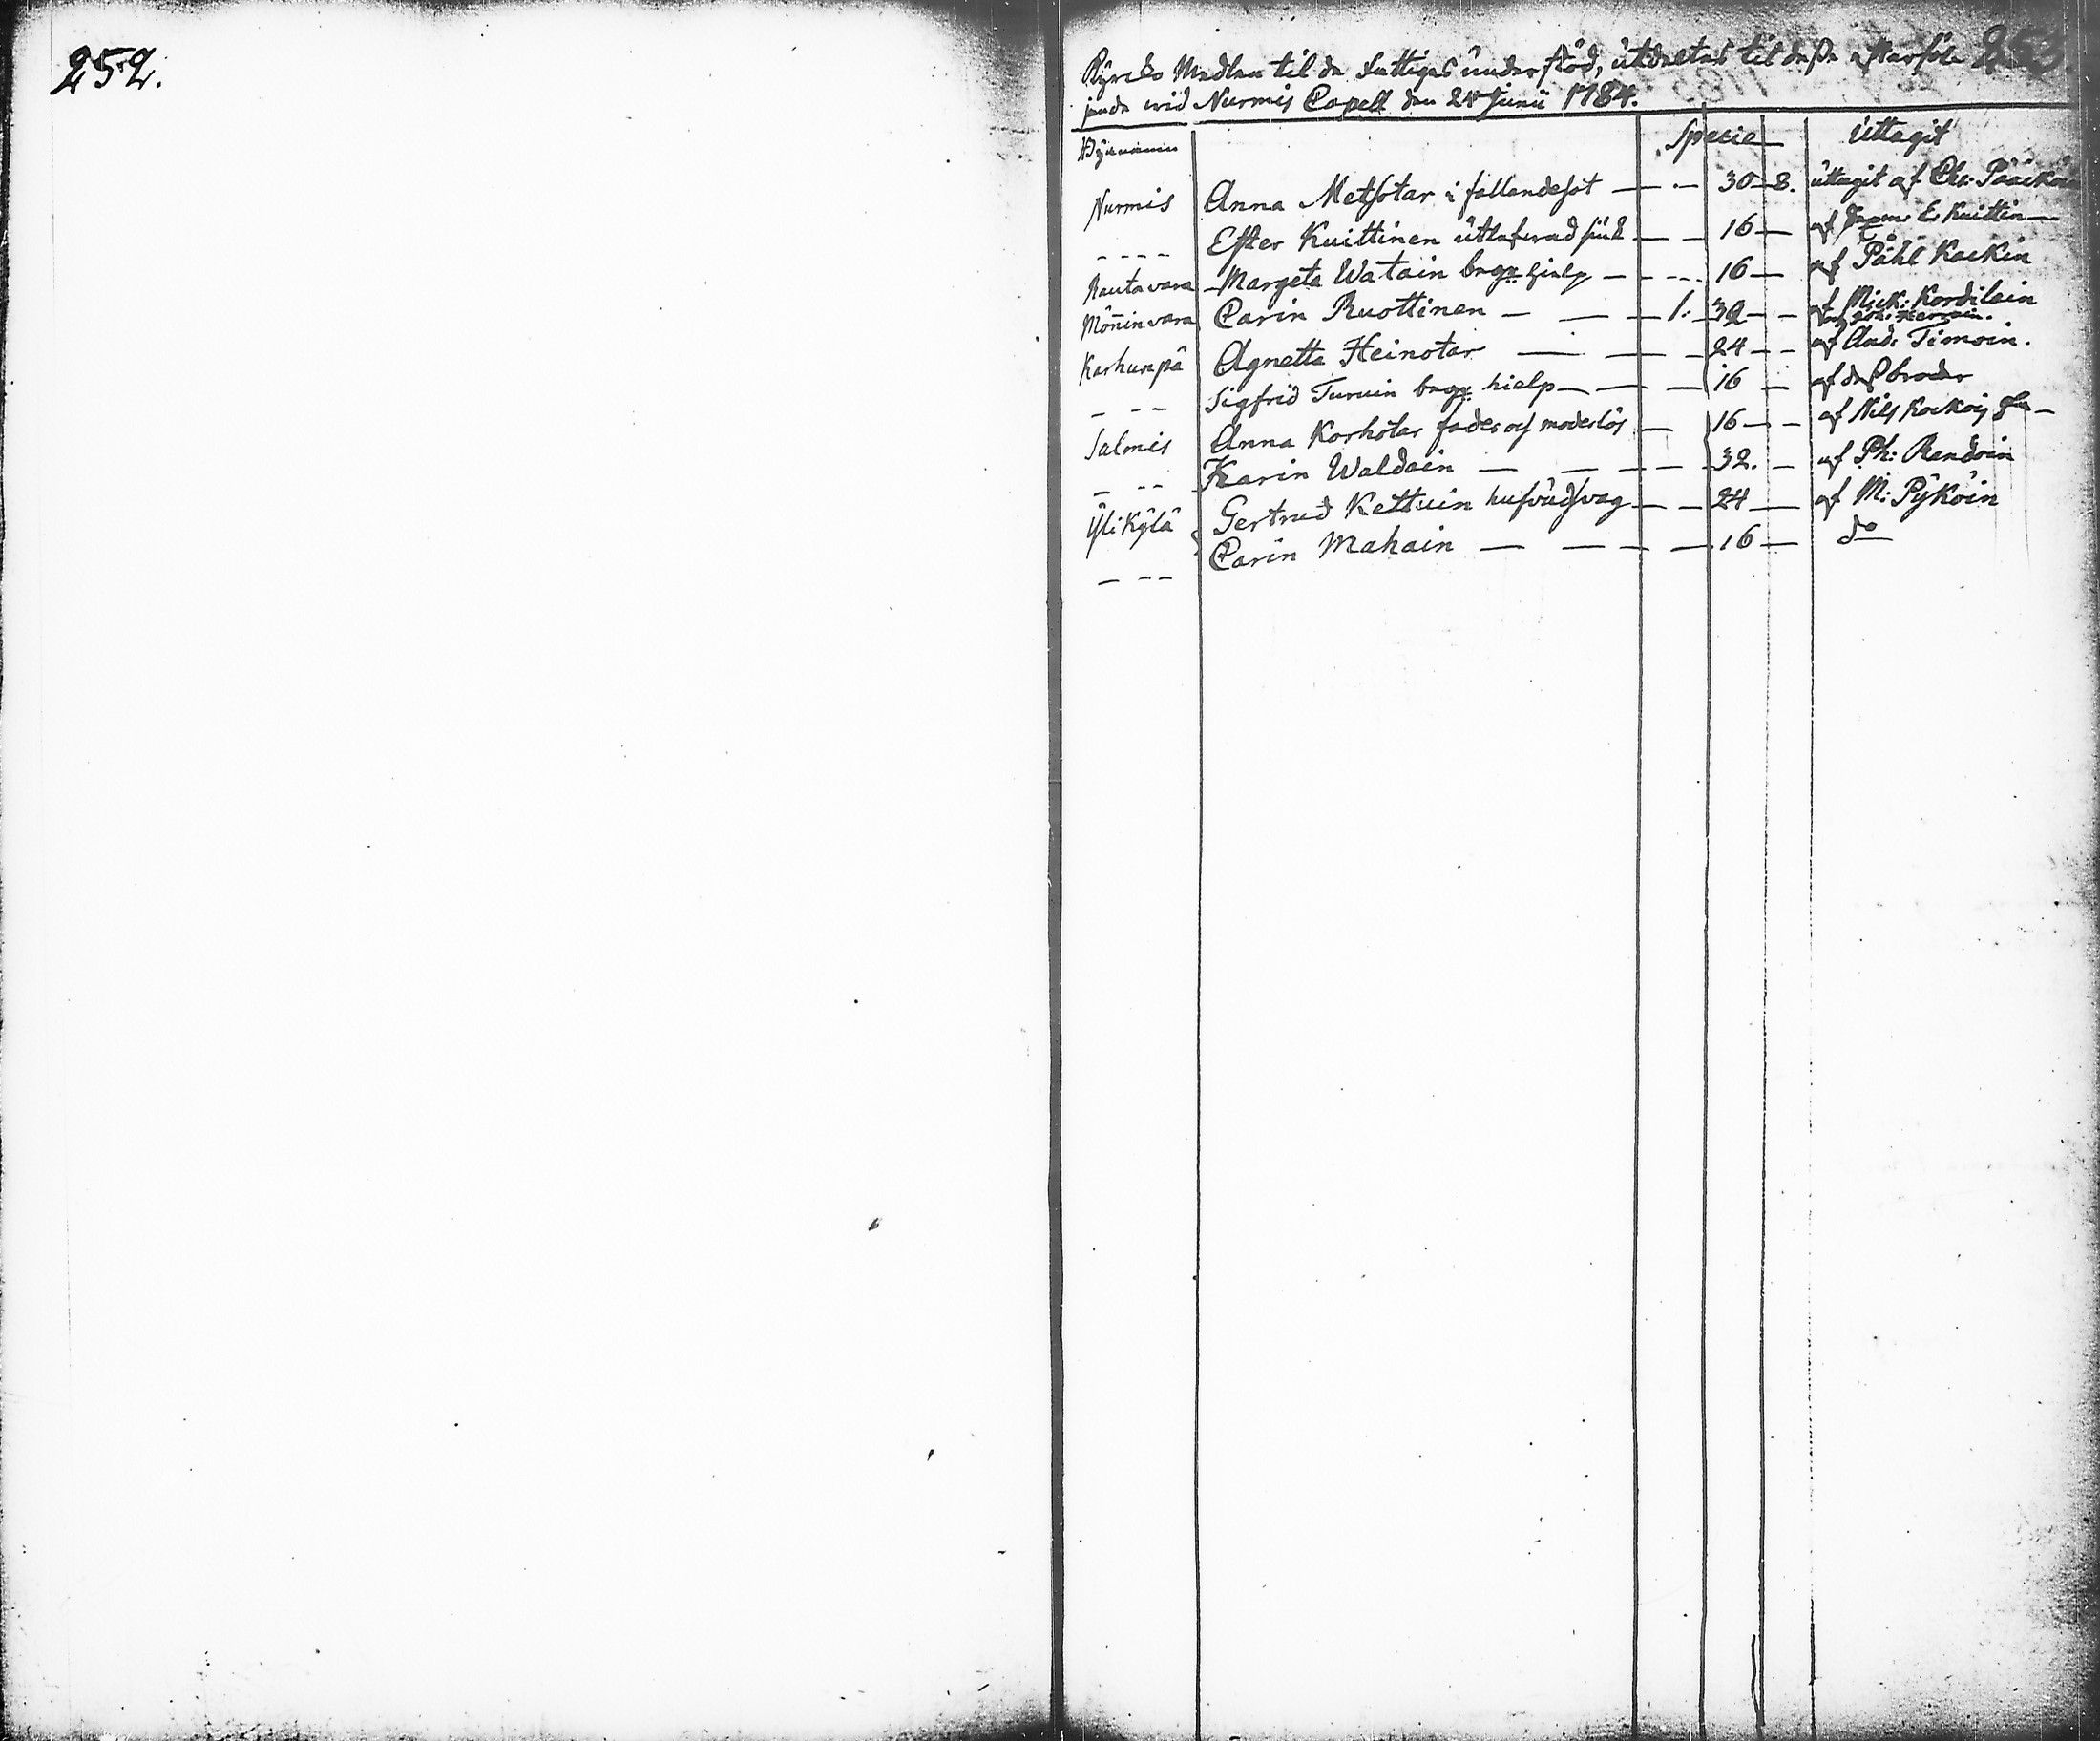 252.
Kyrcko Medlen til de fattigas understöd, utdeltes til desse efterföl- 253
jande wid Nurmis Capell den 24 Junii 1784.
Byarnamn Specie Uttagit
Nurmis Anna Metsotar i fallandesot — — 30 — 8. uttagit af Chr: Pääckön
- - - - Ester Kuittinen utlefwad siuk — — 16 — af E. Kuittin —
Rautavara Margeta Watain hielp — - - - 16 — af Påhl Kackin
Mönninvara Carin Ruottinen — — — 1: 32 — - af Mick: Kordilain
Karhunpä Agnetta Heinotar — — — 24 - - af And: Timoin.
- - - Sigfrid Turuin hielp — — — 16 — af dess broder
Salmis Anna Korhotar fader och moderlös — 16 — - af Nils
- - - Karin Waldain — — — — 32. — af Ph: Randoin
Ylikylä Gertrud Kettuin hufwudswag — — 24 — af M: Pyköin
- - - Carin Mahain — — — — 16 — do